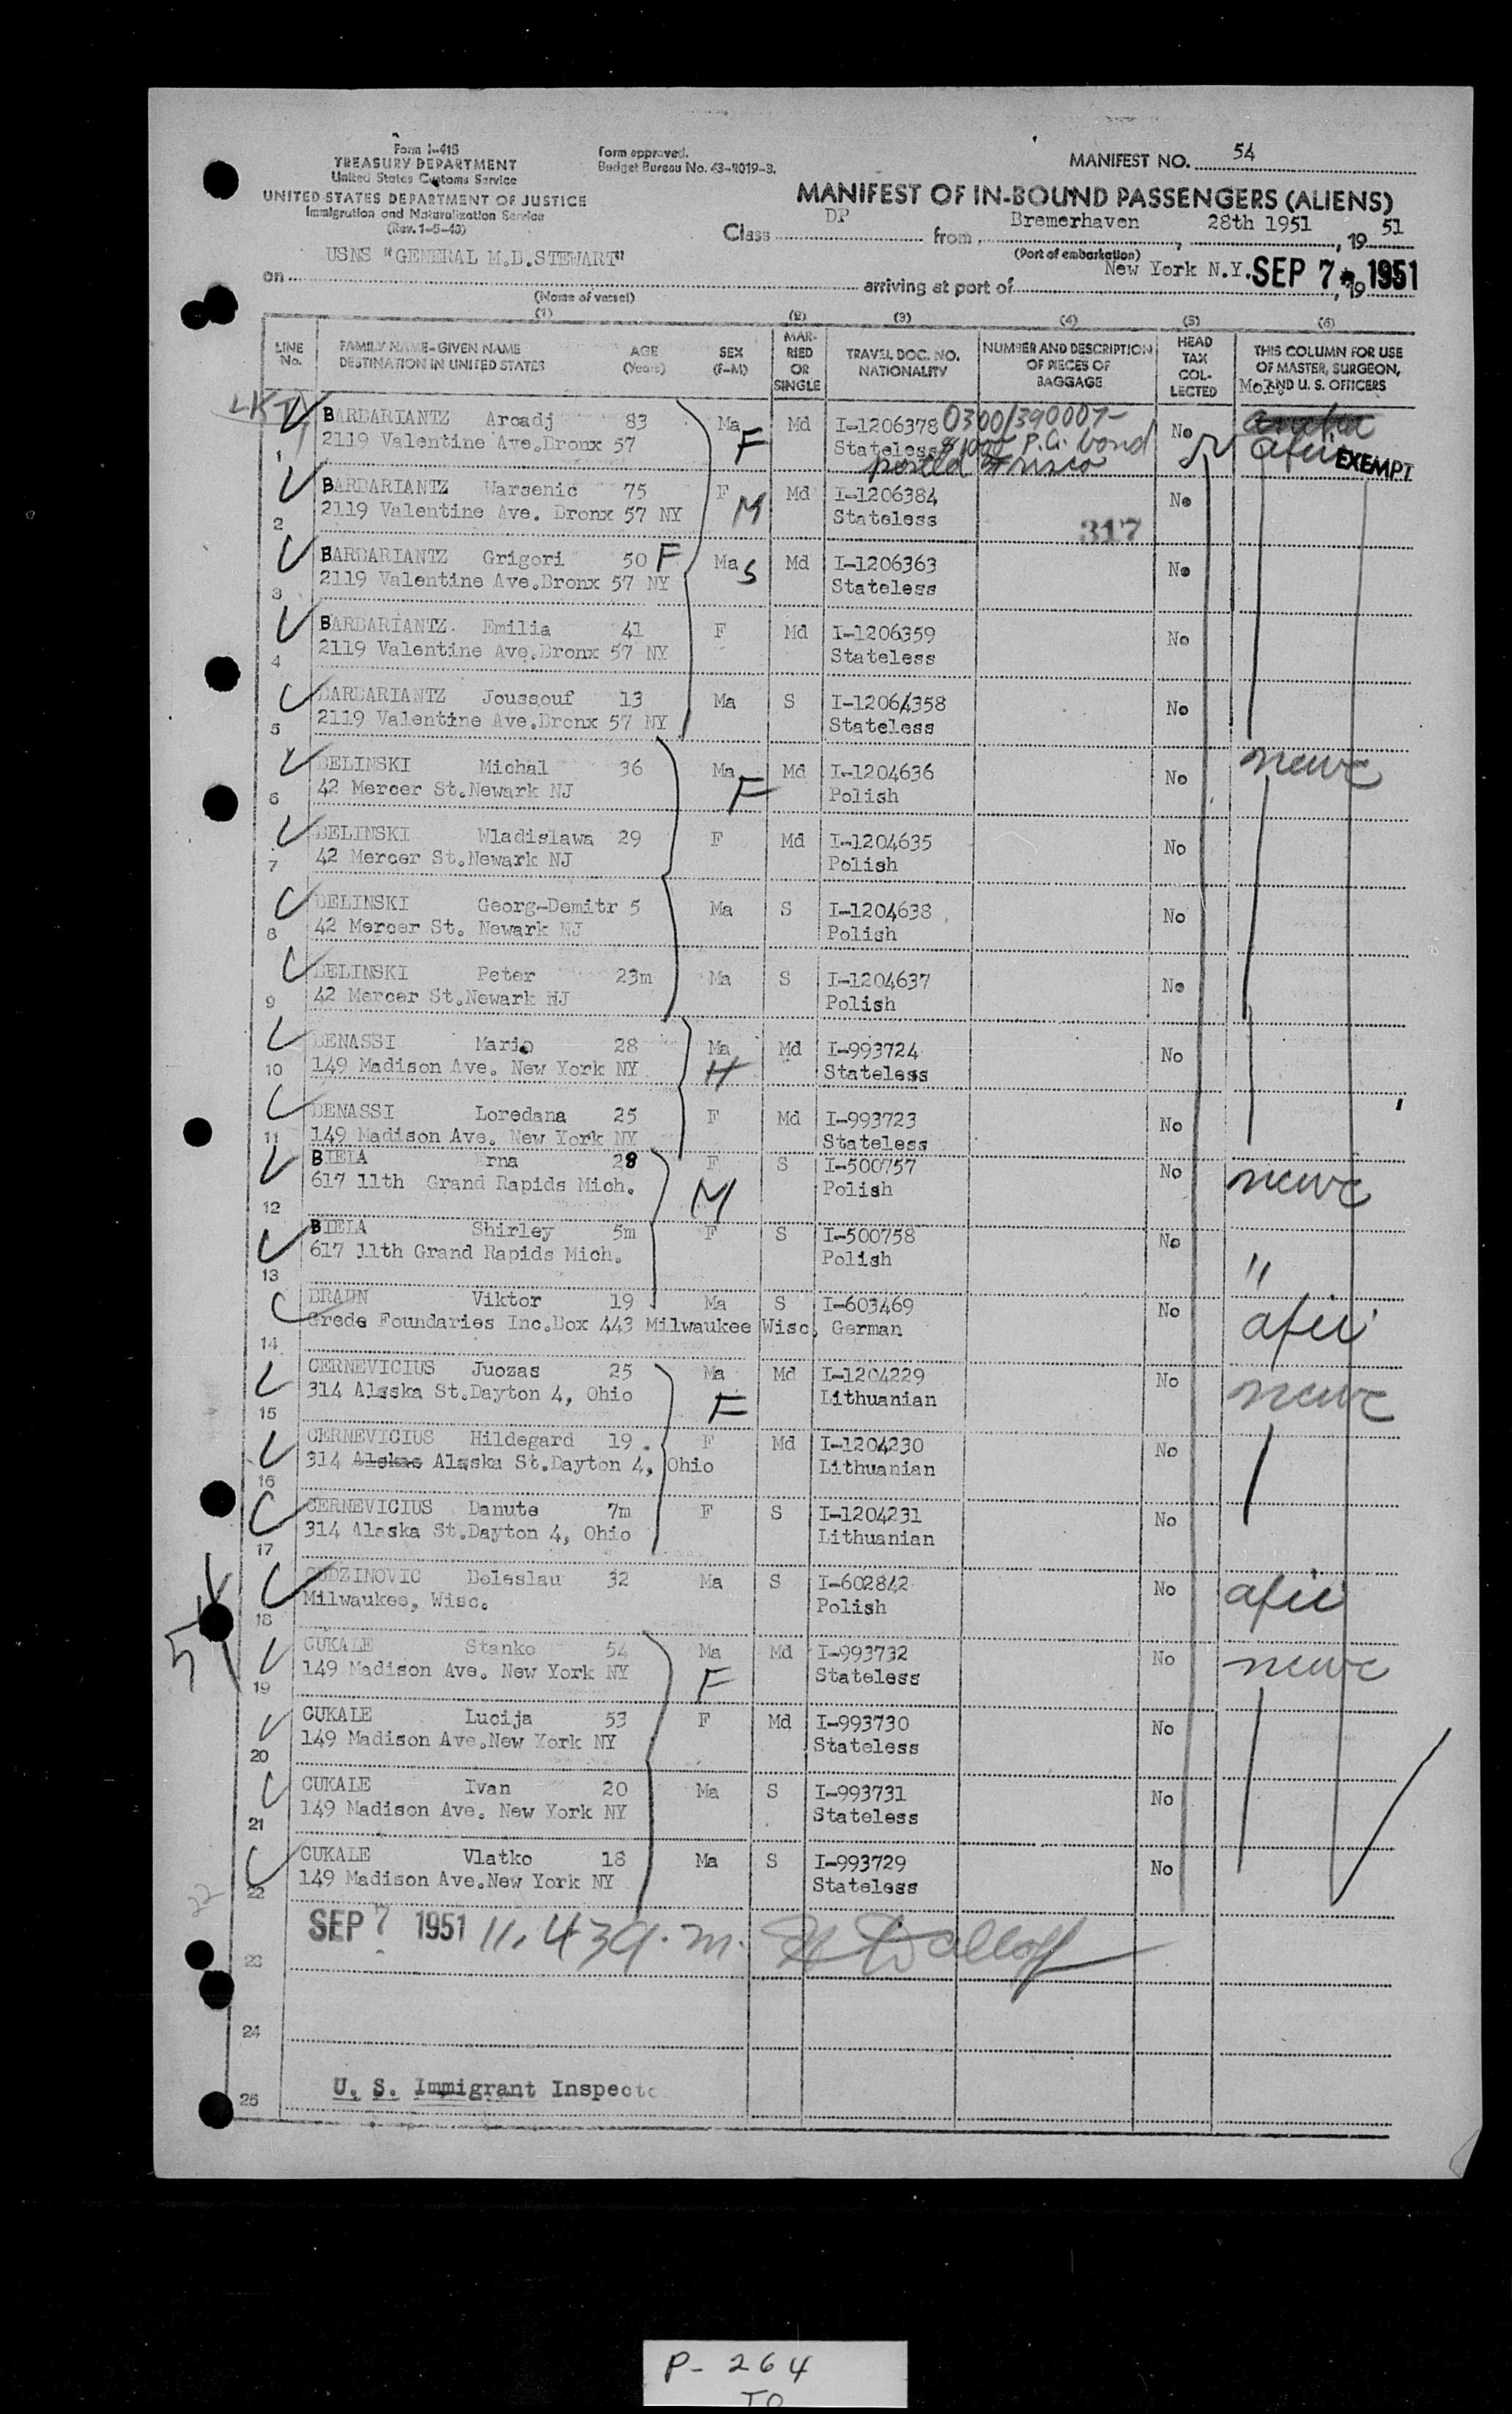 Form I-418
TREASURY DEPARTMENT
United States Customs Service
UNITED STATES DEPARTMENT OF JUSTICE
Immigration and Naturalization Service
(Rev. 1-5-43)
Form approved.
Budget Bureau No. 43-R019-3.
MANIFEST NO. 54
MANIFEST OF IN-BOUND PASSENGERS (ALIENS)
Class DP from Bremerhaven, 28th 1951, 19 51
(Port of embarkation)
on USNS "GENERAL M.B.STEWART" arriving at port of New York N.Y. SEP 7 1951, 19
(Name of vessel)
(1) (2) (3) (4) (5) (6)
LINE No. FAMILY NAME-GIVEN NAME DESTINATION IN UNITED STATES AGE (Years) SEX (F-M) MARRIED OR SINGLE TRAVEL DOC. NO. NATIONALITY NUMBER AND DESCRIPTION OF PIECES OF BAGGAGE HEAD TAX COLLECTED THIS COLUMN FOR USE OF MASTER, SURGEON, AND U. S. OFFICERS
1 BARBARIANTZ Arcadj 83 Ma Md I-1206378 0300/390007- No
2119 Valentine Ave.Bronx 57 F Stateless $1000 P.C. bond afii EXEMPT
posted
2 BARBARIANTZ Warsenic 75 F Md I-1206384 No
2119 Valentine Ave. Bronx 57 NY M Stateless 317
3 BARBARIANTZ Grigori 50 F Ma S Md I-1206363 No
2119 Valentine Ave.Bronx 57 NY Stateless
4 BARBARIANTZ. Emilia 41 F Md I-1206359 No
2119 Valentine Ave.Bronx 57 NY Stateless
5 BARBARIANTZ Joussouf 13 Ma S I-1206358 No
2119 Valentine Ave.Bronx 57 NY Stateless
6 BELINSKI Michal 36 Ma Md I-1204636 No newc
42 Mercer St.Newark NJ F Polish
7 BELINSKI Wladislawa 29 F Md I-1204635 No
42 Mercer St.Newark NJ Polish
8 BELINSKI Georg-Demitr 5 Ma S I-1204638 No
42 Mercer St. Newark NJ Polish
9 BELINSKI Peter 23m Ma S I-1204637 No
42 Mercer St.Newark NJ Polish
10 BENASSI Mario 28 Ma Md I-993724 No
149 Madison Ave. New York NY H Stateless
11 BENASSI Loredana 25 F Md I-993723 No
149 Madison Ave. New York NY Stateless
12 BIELA Erna 28 F S I-500757 No newc
617 11th Grand Rapids Mich. M Polish
13 BIELA Shirley 5m F S I-500758 No "
617 11th Grand Rapids Mich. Polish
14 BRAUN Viktor 19 Ma S I-603469 No afii
Grede Foundaries Inc.Box 443 Milwaukee Wisc, German
15 CERNEVICIUS Juozas 25 Ma Md I-1204229 No newc
314 Alaska St.Dayton 4, Ohio F Lithuanian
16 CERNEVICIUS Hildegard 19 F Md I-1204230 No
314 Alskac Alaska St.Dayton 4, Ohio Lithuanian
17 CERNEVICIUS Danute 7m F S I-1204231 No
314 Alaska St.Dayton 4, Ohio Lithuanian
18 CUDZINOVIC Boleslau 32 Ma S I-602842 No afii
Milwaukee, Wisc. Polish
19 CUKALE Stanko 54 Ma Md I-993732 No newc
149 Madison Ave. New York NY F Stateless
20 CUKALE Lucija 53 F Md I-993730 No
149 Madison Ave.New York NY Stateless
21 CUKALE Ivan 20 Ma S I-993731 No
149 Madison Ave. New York NY Stateless
22 CUKALE Vlatko 18 Ma S I-993729 No
149 Madison Ave.New York NY Stateless
23 SEP 7 1951 11.43 a.m.
24
25 U. S. Immigrant Inspecto
22
P- 264
TO